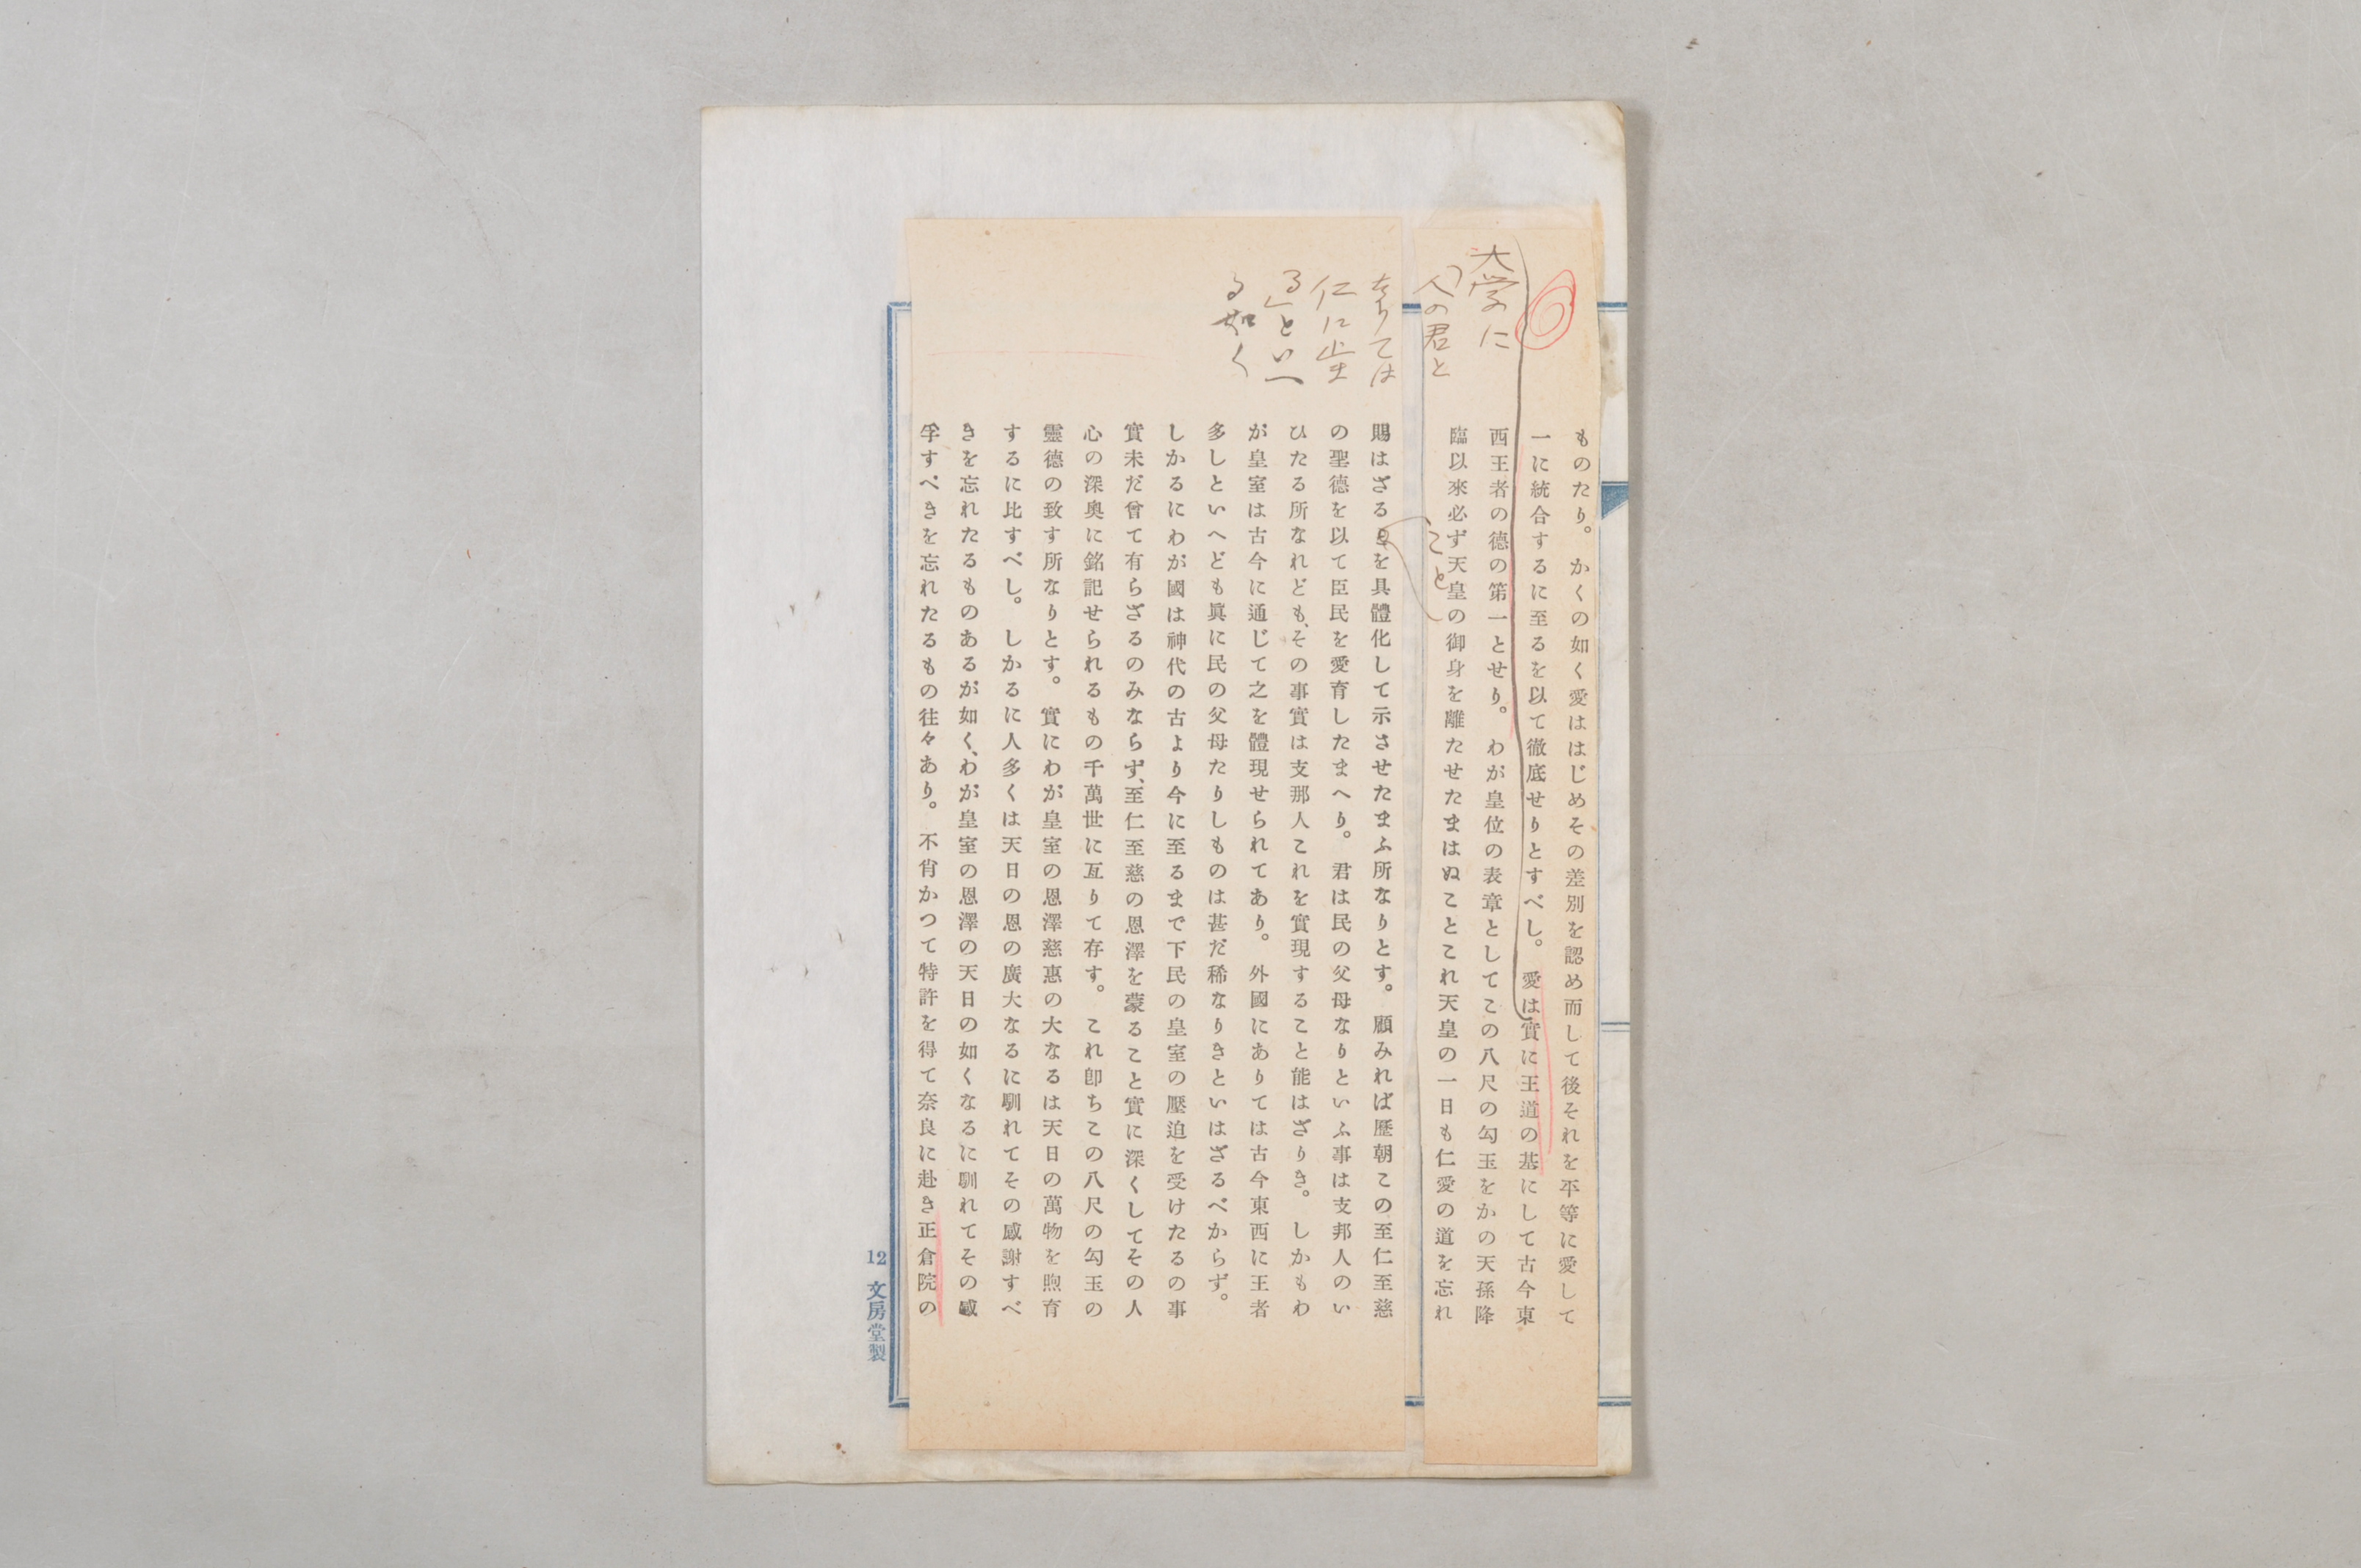 大学に
「人の君と
なりては
仁に止ま
る」といへ
る如く
ものたり。かくの如く愛ははじめその差別を認め而して後それを平等に愛して
一に統合するに至るを以て徹底せりとすべし。愛は實に王道の基にして古今東
西王者の德の第一とせり。わが皇位の表章としてこの八尺の勾玉をかの天孫降
臨以來必ず天皇の御身を離たせたまはぬことこれ天皇の一日も仁愛の道を忘れ
こと
賜はざるを具體化して示させたまふ所なりとす。顧みれば歷朝この至仁至慈
の聖德を以て臣民を愛育したまへり。君は民の父母なりといふ事は支邦人のい
ひたる所なれども、その事實は支那人これを實現すること能はざりき。しかもわ
が皇室は古今に通じて之を體現せられてあり。外國にありては古今東西に王者
多しといへども眞に民の父母たりしものは甚だ稀なりきといはざるべからず。
しかるにわが國は神代の古より今に至るまで下民の皇室の壓迫を受けたるの事
實未だ曾て有らざるのみならず、至仁至慈の恩澤を蒙ること實に深くしてその人
心の深奧に銘記せられるもの千萬世に亙りて存す。これ卽ちこの八尺の勾玉の
靈德の致す所なりとす。實にわが皇室の恩澤慈惠の大なるは天日の萬物を煦育
するに比すべし。しかるに人多くは天日の恩の廣大なるに馴れてその感謝すべ
きを忘れたるものあるが如く、わが皇室の恩澤の天日の如くなるに馴れてその感
孚すべきを忘れたるもの往々あり。不肖かつて特許を得て奈良に赴き正倉院の
12 文房堂製